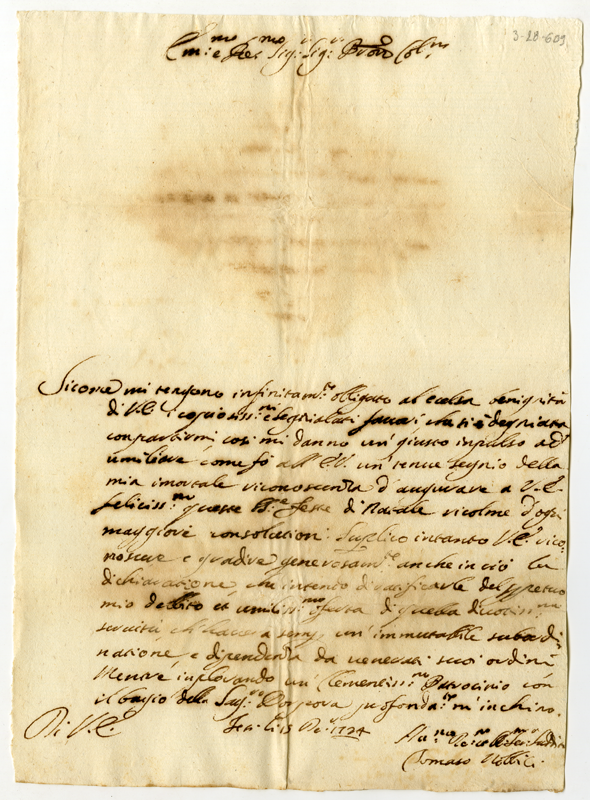 3-28-609
Em:mo e Re:mo Sig:r Sig:r Pron Col:mo
Siccome mi tengono infinitam:te obligato al eccelsa benignità
di V.E. i copiosiss:mi e segnalati favori che si è degniata
compartirmi, cosi mi danno un' giusto inpulso ad
umiliare, come fò all' E.V. un' tenue segnio della
mia imortale riconoscenza d'augurare a V.E.
feliciss:me queste S:te Feste di Natale ricolme d'ogni
maggiore consolatione. Suplico intanto V.E. rico-
noscere e gradire generosam:te anche in ciò la
dichiaratione, che intendo di ratificarle del perpetuo
mio debbito et umiliss:ma oferta di quella divotiss:ma
servitù, ch'havrà semp. un' immutabile subordi-
natione, e dipendenza da venerati suoi ordini
Mentre inplorando un' Clementiss:mo Patrocinio con
il bagio della Sag: Porpora profonda:te m'inchino.
Di V.E.
li 15 De: 1724
Tomaso